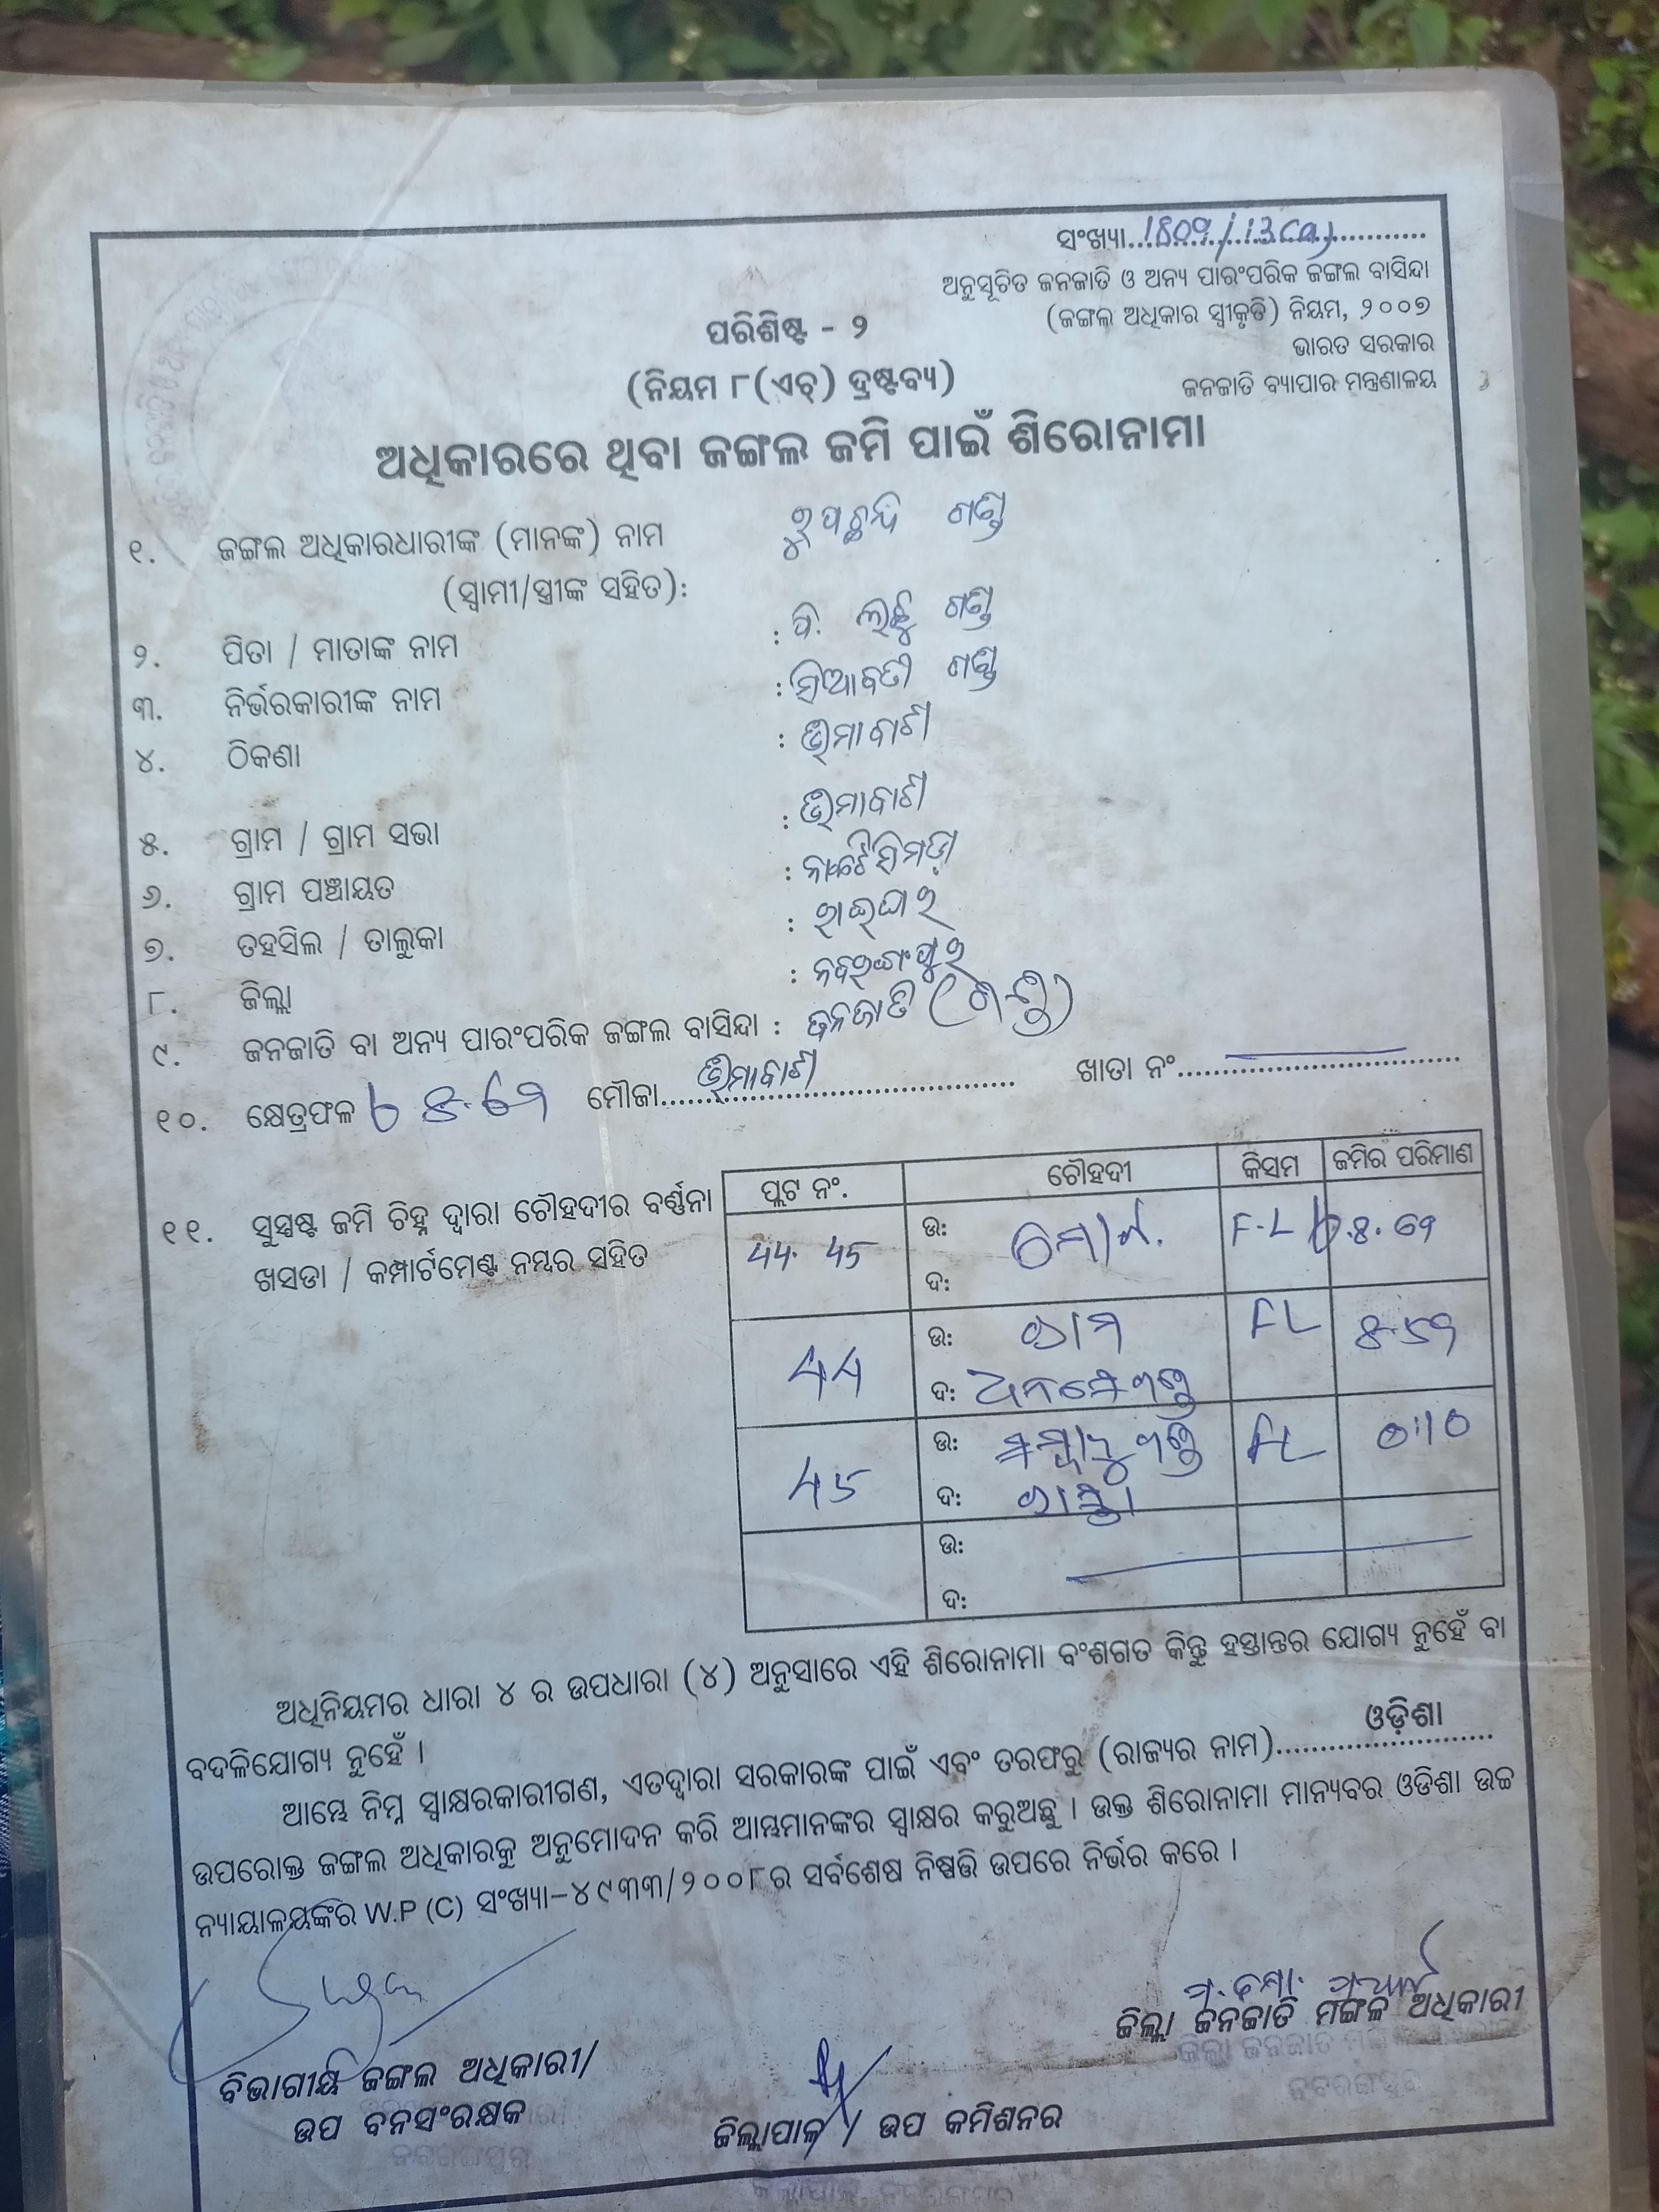 ସଂଖ୍ୟା..1809/13(a)
ଅନୁସୂଚିତ ଜନଜାତି ଓ ଅନ୍ୟ ପାରଂପରିକ ଜଙ୍ଗଲ ବାସିନ୍ଦା
(ଜଙ୍ଗଲ ଅଧିକାର ସ୍ୱୀକୃତି) ନିୟମ, ୨୦୦୭
ଭାରତ ସରକାର
ଜନଜାତି ବ୍ୟାପାର ମନ୍ତ୍ରଣାଳୟ
ପରିଶିଷ୍ଟ - ୨
(ନିୟମ ୮(ଏଚ୍) ଦ୍ରଷ୍ଟବ୍ୟ)
ଅଧିକାରରେ ଥିବା ଜଙ୍ଗଲ ଜମି ପାଇଁ ଶିରୋନାମା
୧. ଜଙ୍ଗଲ ଅଧିକାରଧାରୀଙ୍କ (ମାନଙ୍କ) ନାମ ଗଣ୍ଡ
(ସ୍ୱାମୀ/ସ୍ତ୍ରୀଙ୍କ ସହିତ):
୨. ପିତା / ମାତାଙ୍କ ନାମ : ପି. ଲଛୁ ଗଣ୍ଡ
୩. ନିର୍ଭରକାରୀଙ୍କ ନାମ : ଗଣ୍ଡ
୪. ଠିକଣା : ଭିମାବାଟୀ
୫. ଗ୍ରାମ / ଗ୍ରାମ ସଭା : ଭିମାବାଟୀ
୬. ଗ୍ରାମ ପଞ୍ଚାୟତ :
୭. ତହସିଲ / ତାଲୁକା : ରାଇଘର
୮. ଜିଲ୍ଲା : ନବରଙ୍ଗପୁର
୯. ଜନଜାତି ବା ଅନ୍ୟ ପାରଂପରିକ ଜଙ୍ଗଲ ବାସିନ୍ଦା : ଜନଜାତି (ଗଣ୍ଡ)
୧୦. କ୍ଷେତ୍ରଫଳ ମୌଜା.....ଭିମାବାଟୀ..... ଖାତା ନଂ..........
୧୧. ସୁସ୍ପଷ୍ଟ ଜମି ଚିହ୍ନ ଦ୍ୱାରା ଚୌହଦୀର ବର୍ଣ୍ଣନା
ଖସଡା / କମ୍ପାର୍ଟମେଣ୍ଟ ନମ୍ବର ସହିତ
ପ୍ଲଟ ନଂ. ଚୌହଦୀ କିସମ ଜମିର ପରିମାଣ
44. 45 ଉ: F.L
ଦ:
44 ଉ: FL
ଦ: ଗଣ୍ଡ
45 ଉ: ଗଣ୍ଡ FL 0.10
ଦ: ରାସ୍ତା
ଉ:
ଦ:
ଅଧିନିୟମର ଧାରା ୪ ର ଉପଧାରା (୪) ଅନୁସାରେ ଏହି ଶିରୋନାମା ବଂଶଗତ କିନ୍ତୁ ହସ୍ତାନ୍ତର ଯୋଗ୍ୟ ନୁହେଁ ବା
ବଦଳିଯୋଗ୍ୟ ନୁହେଁ ।
ଆମ୍ଭେ ନିମ୍ନ ସ୍ୱାକ୍ଷରକାରୀଗଣ, ଏତଦ୍ୱାରା ସରକାରଙ୍କ ପାଇଁ ଏବଂ ତରଫରୁ (ରାଜ୍ୟର ନାମ)......ଓଡ଼ିଶା......
ଉପରୋକ୍ତ ଜଙ୍ଗଲ ଅଧିକାରକୁ ଅନୁମୋଦନ କରି ଆମ୍ଭମାନଙ୍କର ସ୍ୱାକ୍ଷର କରୁଅଛୁ । ଉକ୍ତ ଶିରୋନାମା ମାନ୍ୟବର ଓଡିଶା ଉଚ୍ଚ
ନ୍ୟାୟାଳୟଙ୍କର W.P (C) ସଂଖ୍ୟା-୪୯୩୩/୨୦୦୮ର ସର୍ବଶେଷ ନିଷ୍ପତ୍ତି ଉପରେ ନିର୍ଭର କରେ ।
ଜିଲ୍ଲା ଜନଜାତି ମଙ୍ଗଳ ଅଧିକାରୀ
ନବରଙ୍ଗପୁର
ବିଭାଗୀୟ ଜଙ୍ଗଲ ଅଧିକାରୀ/
ଉପ ବନସଂରକ୍ଷକ
ନବରଙ୍ଗପୁର
ଜିଲ୍ଲାପାଳ / ଉପ କମିଶନର